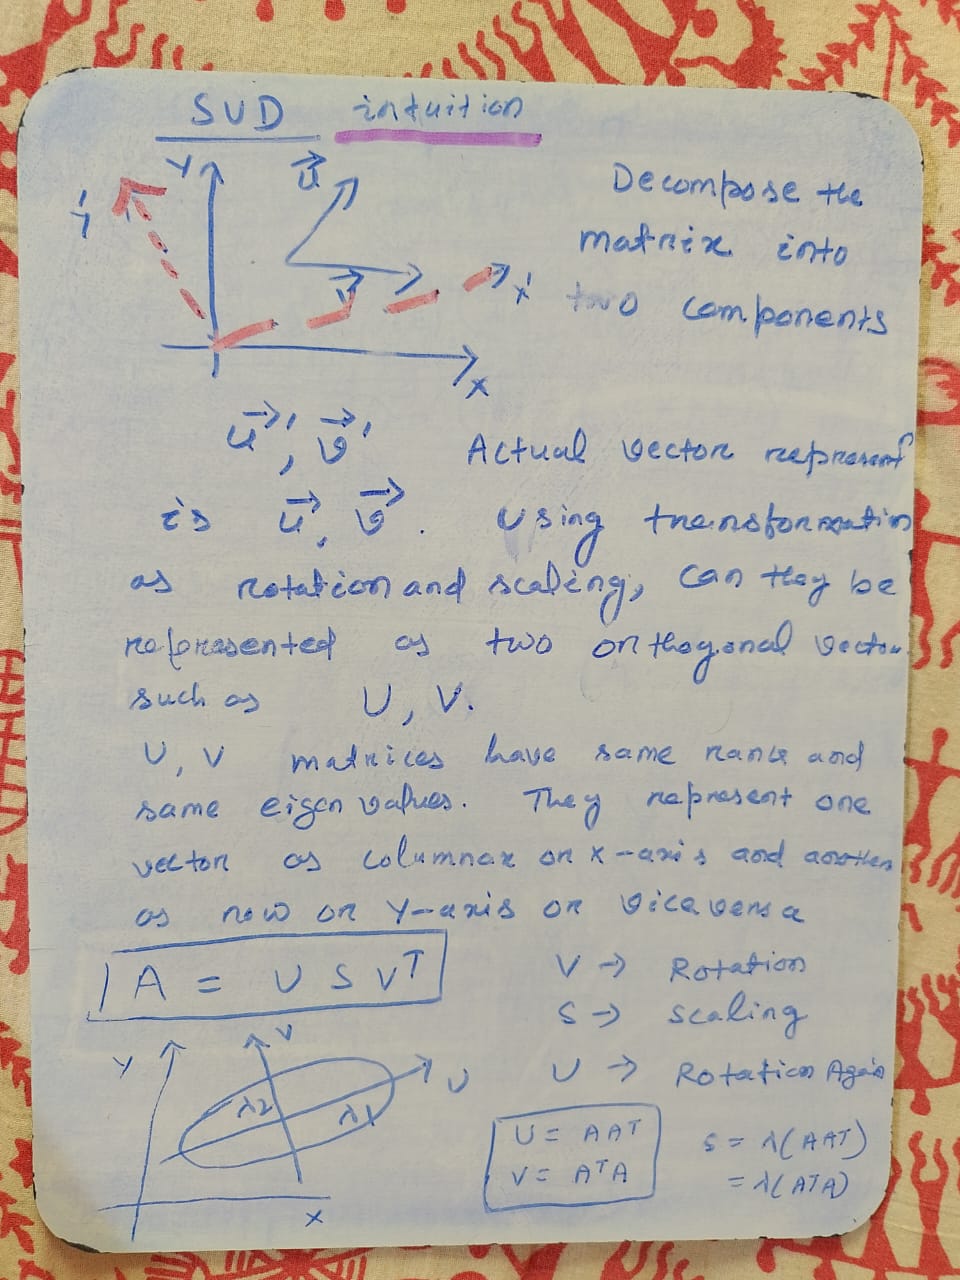 SVD intuition
Y
u⃗
Decompose the
matrix into
two components
y'
v⃗
x'
x
u⃗', v⃗'
Actual vector represent
is u⃗, v⃗. Using transformation
as rotation and scaling, can they be
represented as two orthogonal vector
such as U, V.
U, V matrices have same rank and
same eigen values. They represent one
vector as columnar on X-axis and another
as row on Y-axis or vica versa
A = U S Vᵀ
V → Rotation
S → scaling
U → Rotation Again
Y
V
U
λ2
λ1
X
U = AAᵀ
V = AᵀA
S = λ(AAᵀ)
= λ(AᵀA)